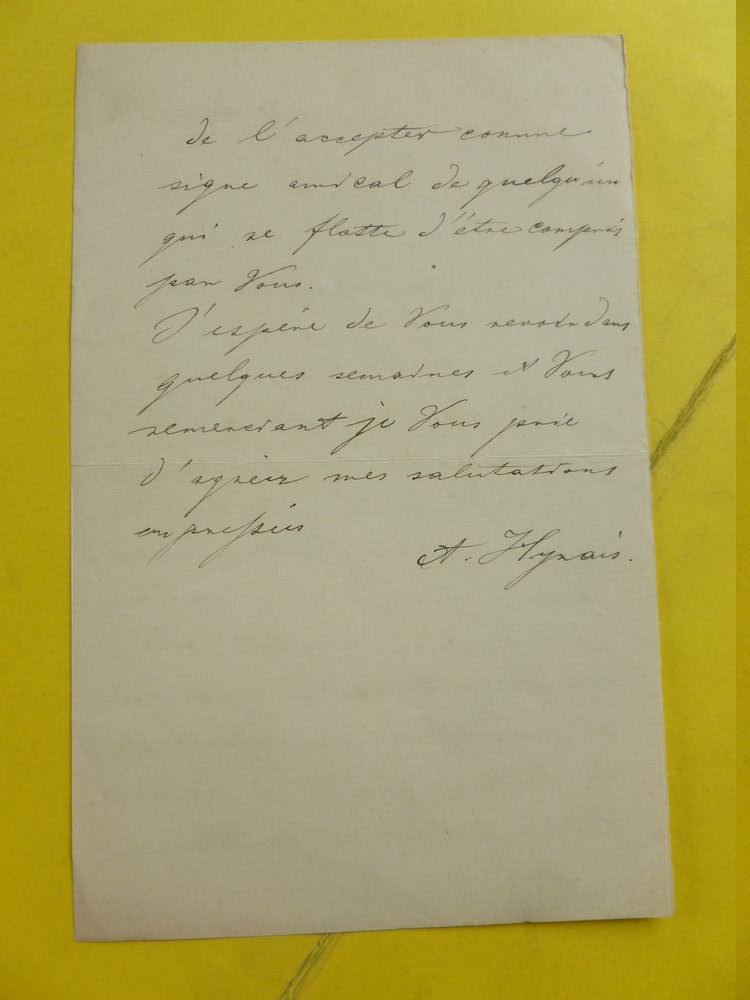 de l'accepter comme
signe amical de quelqu'un
qui se flatte d'être compris
par Vous.
J'espére de Vous revoir dans
quelques semaines et Vous
remerciant je Vous prie
d'agréer mes salutations
empressées
A. Hynais.